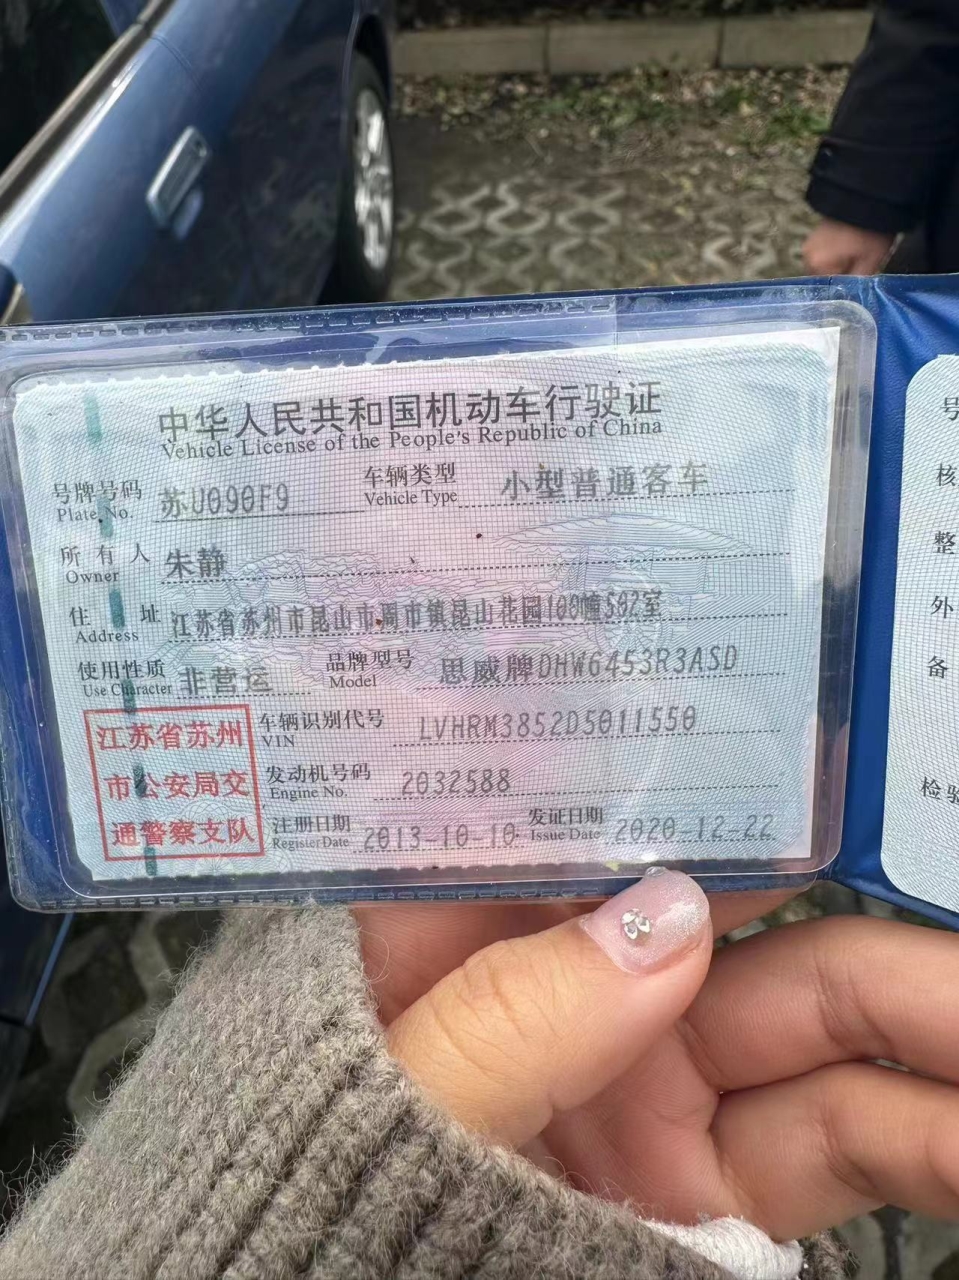 中华人民共和国机动车行驶证
Vehicle License of the People's Republic of China
号牌号码 苏U090F9 车辆类型 小型普通客车
Plate No. Vehicle Type
所有人 朱静
Owner
住址 江苏省苏州市昆山市周市镇昆山花园108幢502室
Address
使用性质 非营运 品牌型号 思威牌DHW6453R3ASD
Use Character Model
江苏省苏州
市公安局交
通警察支队
车辆识别代号 LVHRM3852D5011550
VIN
发动机号码 2032588
Engine No.
注册日期 2013-10-10 发证日期 2020-12-22
Register Date Issue Date
号
核
整
外
备
检验